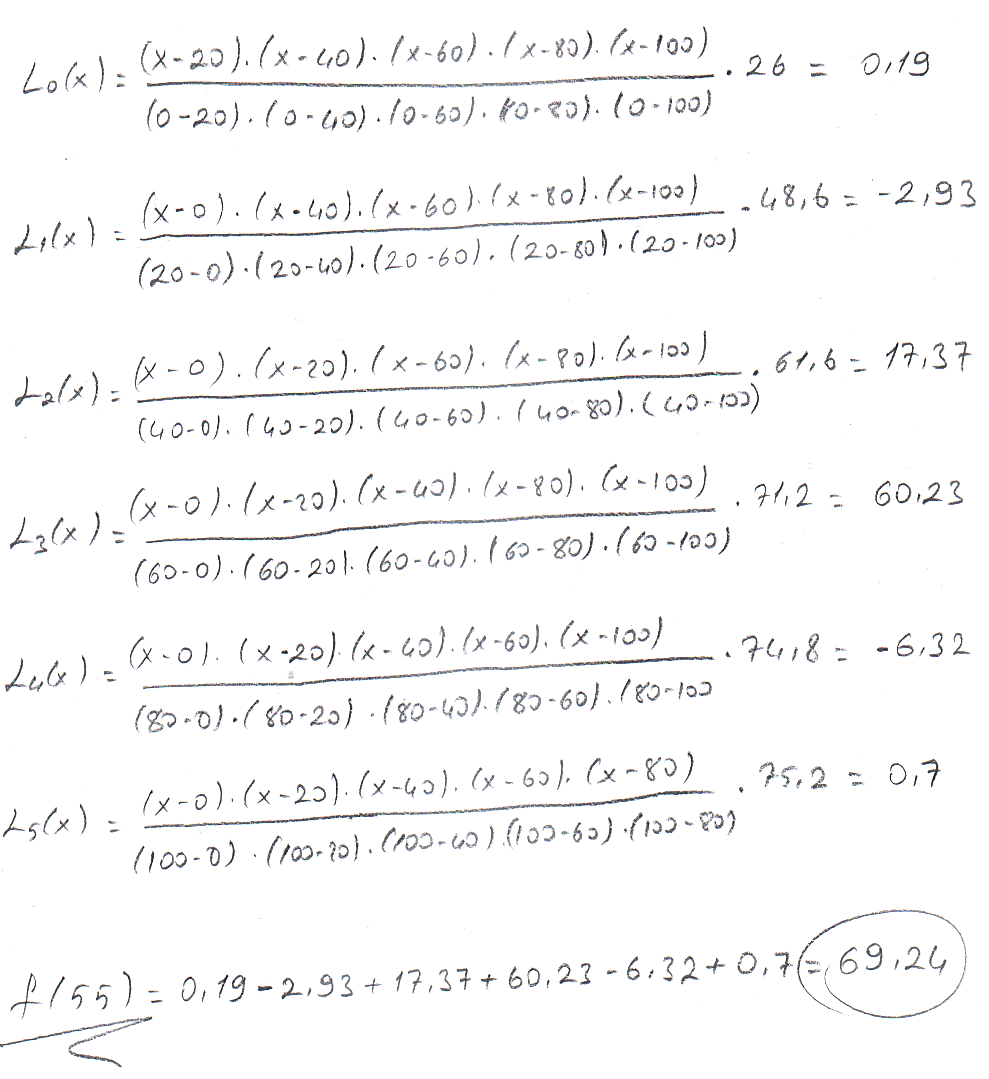 L₀(x) = (x-20).(x-40).(x-60).(x-80).(x-100) / (0-20).(0-40).(0-60).(0-80).(0-100) . 26 = 0,19
L₁(x) = (x-0).(x-40).(x-60).(x-80).(x-100) / (20-0).(20-40).(20-60).(20-80).(20-100) . 48,6 = -2,93
L₂(x) = (x-0).(x-20).(x-60).(x-80).(x-100) / (40-0).(40-20).(40-60).(40-80).(40-100) . 61,6 = 17,37
L₃(x) = (x-0).(x-20).(x-40).(x-80).(x-100) / (60-0).(60-20).(60-40).(60-80).(60-100) . 71,2 = 60,23
L₄(x) = (x-0).(x-20).(x-40).(x-60).(x-100) / (80-0).(80-20).(80-40).(80-60).(80-100 . 74,8 = -6,32
L₅(x) = (x-0).(x-20).(x-40).(x-60).(x-80) / (100-0).(100-20).(100-40).(100-60).(100-80) . 75,2 = 0,7
f(55) = 0,19-2,93+17,37+60,23-6,32+0,7=69,24